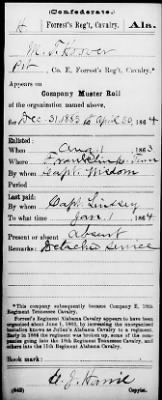 (Confederate.)
H Forrest's Reg't, Cavalry. Ala.
M. T. Hoover
Pvt, Co. E, Forrest's Reg't, Cavalry.*
Appears on
Company Muster Roll
of the organization named above,
for Dec 31, 1863 to April 30, 1864
Enlisted:
When 1, 1863
Where Franklin, Tenn
By whom Capt.
Period
Last paid:
By whom Capt. Lindsey
To what time Jan 1, 1864
Present or absent absent
Remarks: Detached Service
*This company subsequently became Company E, 18th
Regiment Tennessee Cavalry.
Forrest's Regiment Alabama Cavalry appears to have been
organized about June 1, 1863, by increasing the
known as Julian's Alabama Cavalry to a regiment.
Early in 1864 the regiment was broken up, some of the com-
panies going into the 18th Regiment Tennessee Cavalry, and
others into the 10th Regiment Alabama Cavalry.
Book mark:
(642) Copyist.